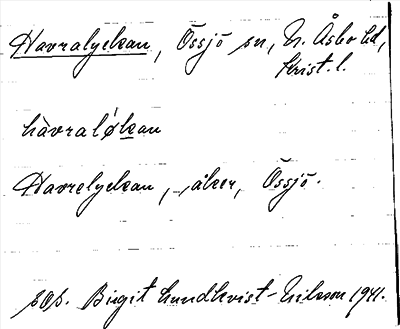 Havralyckan, Össjö sn, N. Åsbo hd,
Krist. l.
hàvralǿkan
Havrelyckan, åker, Össjö.
Birgit Lundkvist-Nilsson 1941.